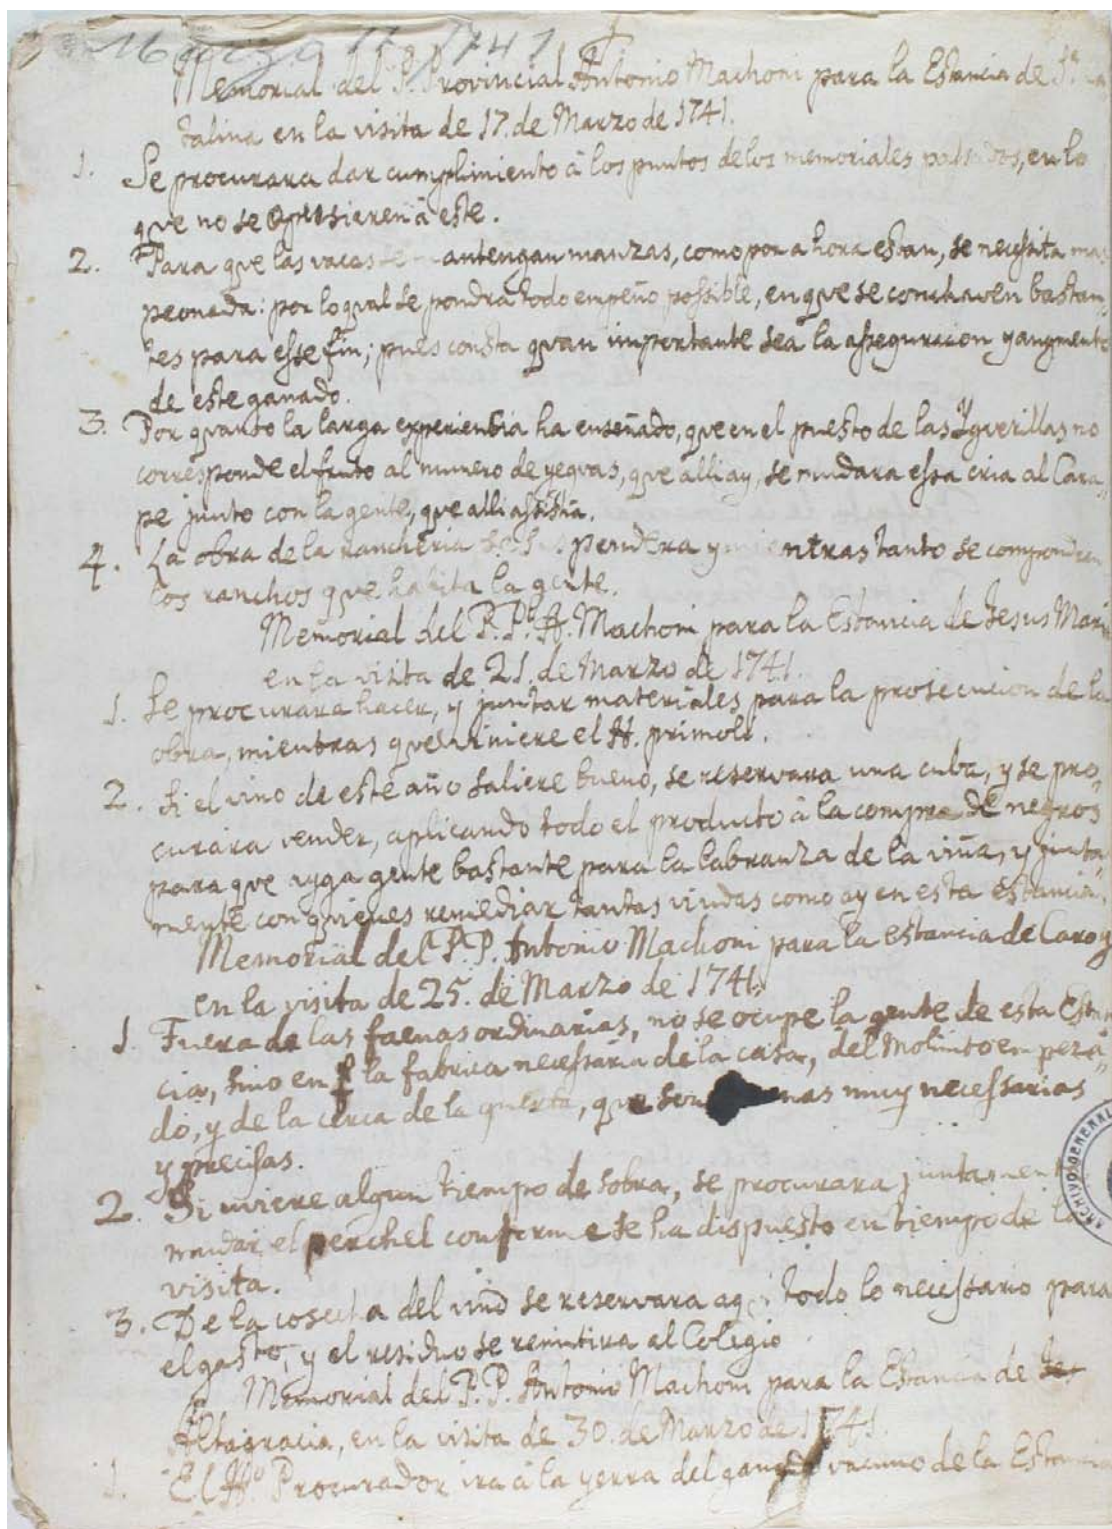 Marzo 17 1741
Memorial del P. Provincial Antonio Machoni para la Estancia de Sta
talina en la visita de 17. de Marzo de 1741.
1. Se procurara dar cumplimiento à los puntos de los memoriales passados, en lo
que no se opusieren à este.
2. Para que las vacas se mantengan manzas, como por ahora estan, se necessita mas
peonada: por lo qual se pondrà todo empeño possible, en que se conchaven bastan
tes para esse fin; pues consta quan importante sea la asseguracion y augmento
de este ganado.
3. Por quanto la larga experiencia ha enseñado, que en el puesto de las Yguerillas no
corresponde el fruto al numero de yeguas, que alli ay, se mudara essa cria al Cara,,
pe junto con la gente, que alli assistia.
4. La obra de la rancheria se suspendera y mientras tanto se compondran
los ranchos que habita la gente.
Memorial del P. Pl. A. Machoni para la Estancia de Jesus Maria
en la visita de 21. de Marzo de 1741.
1. Se procurara hacer, y juntar materiales para la prosecucion de la
obra, mientras que viniere el H. primoli.
2. Si el vino de este año saliere bueno, se reservara una cuba, y se pro,,
curara vender, aplicando todo el producto à la compra de negros
para que ayga gente bastante para la labranza de la viña, y junta,,
mente con quienes remediar tantas viudas como ay en esta estancia.
Memorial del P. P. Antonio Machoni para la estancia de Caroya
en la visita de 25. de Marzo de 1741.
1. Fuera de las faenas ordinarias, no se ocupe la gente de esta Estan
cia, sino en la fabrica necessaria de la casa, del Molinito empeza,,
do, y de la cerca de la guerta, que son nas muy necessarias
y precisas.
2. Si uviere algun tiempo de sobra, se procurara juntament
mudar el perchel conforme se ha dispuesto en tiempo de la
visita.
3. De la cosecha del vino se reservara aqui todo lo necessario para
el gasto, y el residuo se remitira al Colegio
Memorial del P. P. Antonio Machoni para la Estancia de
Altagracia, en la visita de 30. de Marzo de 1741.
1. El Ho. Procurador ira à la yerra del ganado vacuno de la Estancia
ARCHIVO GENERAL